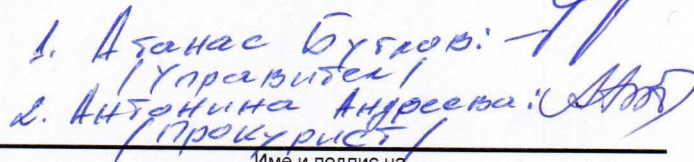 1. Атанас Бутков:
/Управител/
2. Антонина Андреева:
/Прокурист/
Име и подпис на